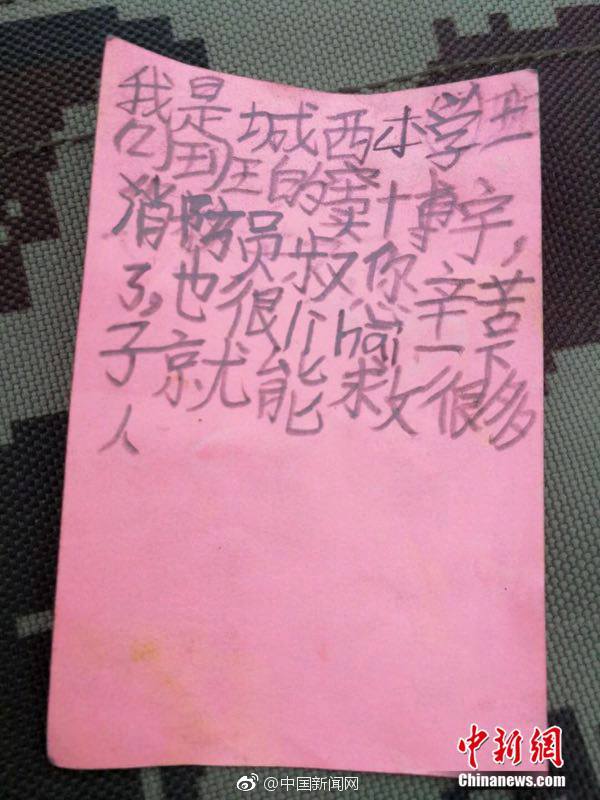 我是城西小学
班的窦博宇，
消防员叔叔你辛苦
了，也很li hai一下
子就能救很多
人
中新網
Chinanews.com
@中国新闻网